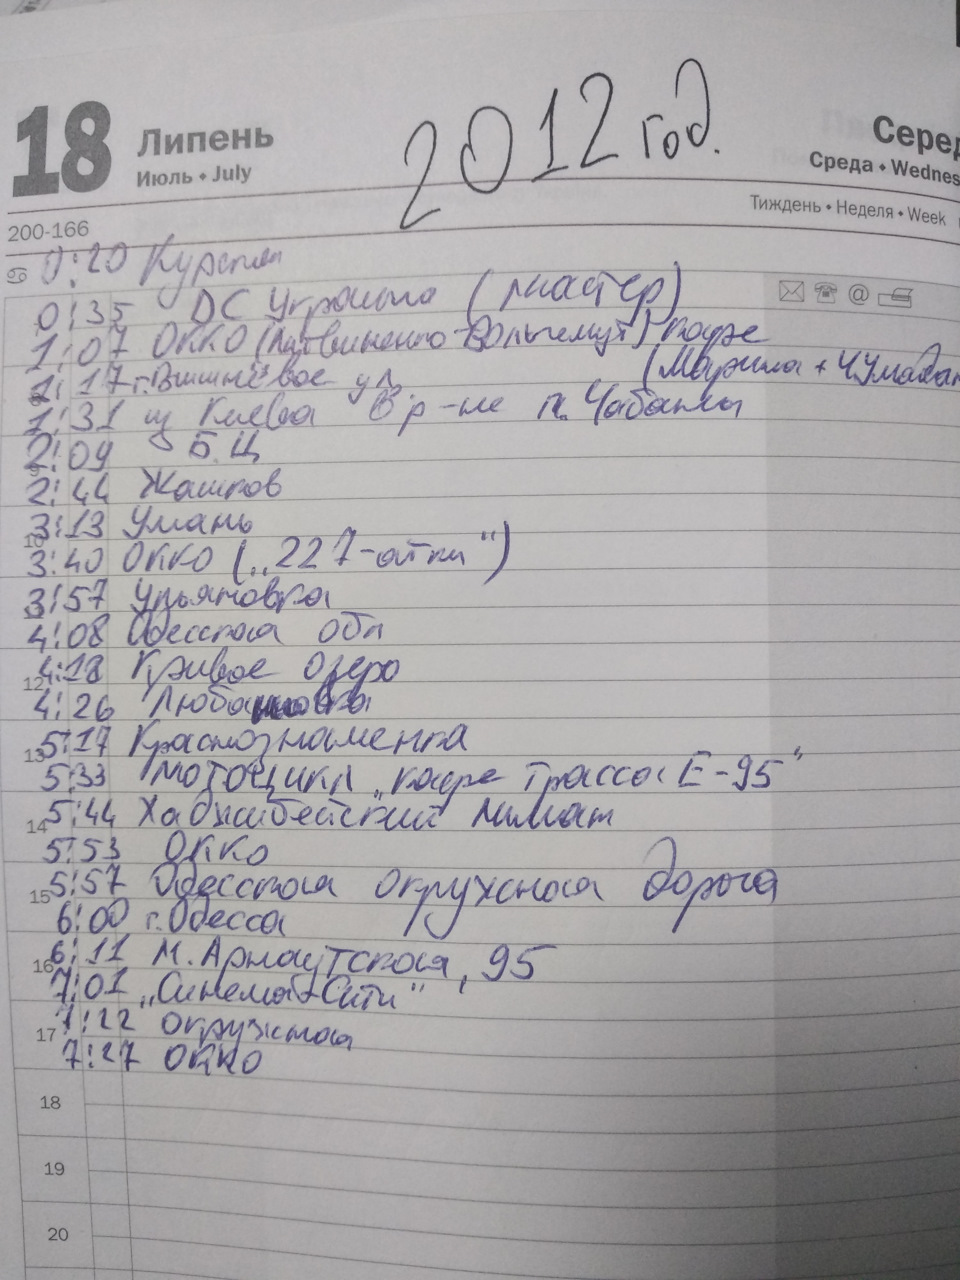 18
Липень
Июль • July
2012 год.
Серед
Среда • Wednes
Тиждень • Неделя • Week
200-166
0:20 Курский
0:35 ДС Украина (мастер)
1:07 ОККО (Литвиненко-Вольгемут) кафе
(Марина + Чумадан
1:17 г. Вишнёвое ул
1:31 из Киева в р-не п. Чабаны
2:09 Б.Ц
2:44 Жашков
3:13 Умань
10
3:40 ОККО („227-атки")
3:57 Ульяновка
4:08 Одесская обл
4:18 Кривое Озеро
12
4:26 Любашовка
5:17 Краснознаменка
13
5:33 мотоцикл „кафе трасса Е-95"
5:44 Хаджибейский лиман
14
5:53 ОККО
5:57 Одесская окружная дорога
15
6:00 г. Одесса
6:11 М. Арнаутская, 95
16
7:01 „Синема-Сити"
7:22 окружная
17
7:27 ОККО
18
19
20